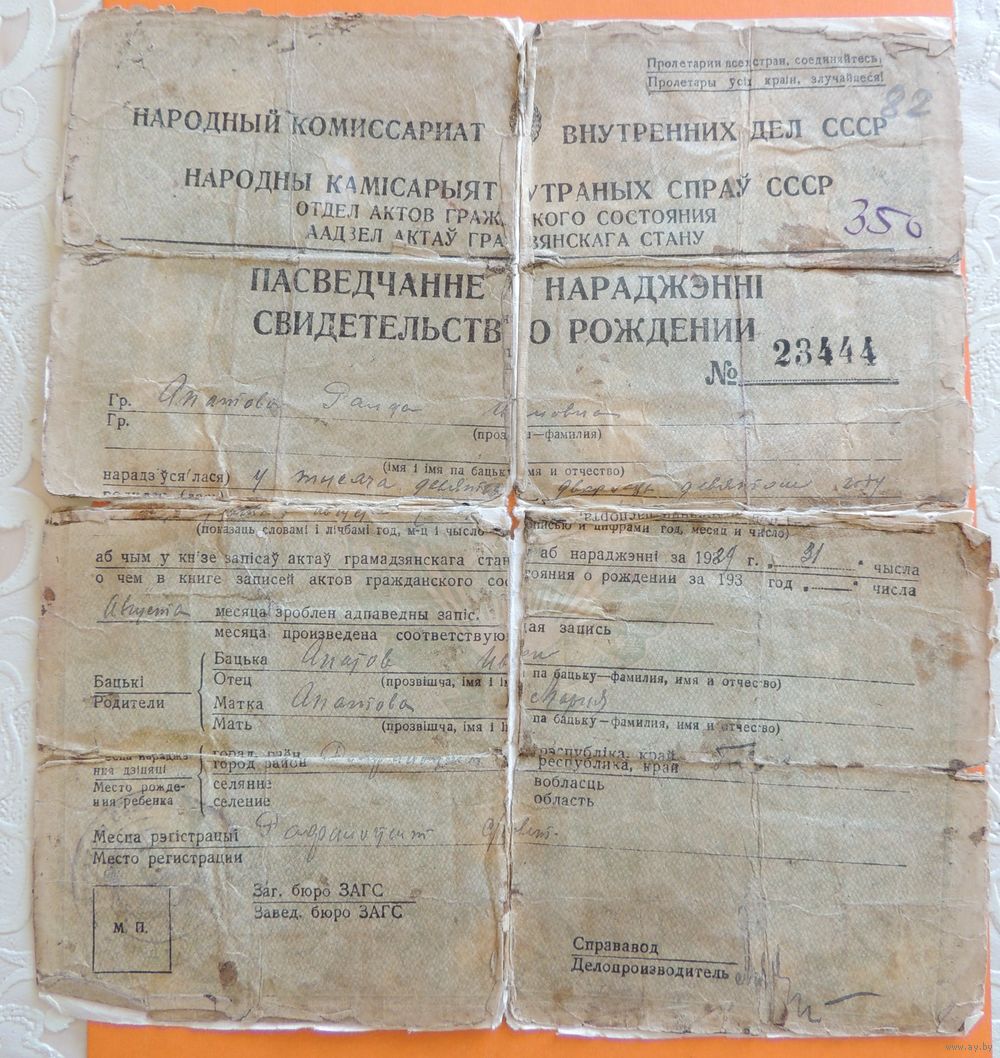 Пролетарии всех стран, соединяйтесь,
Пролетары ўсіх краін, злучайцеся!
82
НАРОДНЫЙ КОМИССАРИАТ ВНУТРЕННИХ ДЕЛ СССР
НАРОДНЫ КАМІСАРЫЯТ УТРАНЫХ СПРАЎ СССР
350
ОТДЕЛ АКТОВ ГРАЖ КОГО СОСТОЯНИЯ
ААДЗЕЛ АКТАЎ ГРА ЗЯНСКАГА СТАНУ
ПАСВЕДЧАННЕ НАРАДЖЭННІ
СВИДЕТЕЛЬСТВ О РОЖДЕНИИ
№ 23444
Гр. Апатова
Гр.
(проз а—фамилия)
(імя і імя па бацьку мя и отчество)
нарадз'ўся'лася) у тысяча дзевят дзевятом году
(показаць словамі і лічбамі год, м-ц і чысло описью и цифрами год, месяц и число)
аб чым у кн'зе запісаў актаў грамадзянскага стан аб нараджэнні за 1929 г. 31 чысла
о чем в книге записей актов гражданского сос тояния о рождении за 193 год числа
Августа месяца зроблен адпаведны запіс.
месяца произведена соответствую щая запись
Бацькі
Родители
Бацька Апатов Иван
Отец (прозвішча, імя і і па бацьку—фамилия, имя и отчество)
Матка Апатова Мария
Мать (прозвішча, імя і і па бацьку—фамилия, имя и отчество)
ння дзіцяці
Место рожде-
ния ребенка
горад, раён рэспубліка, край
город район республика, край
селянне вобласць
селение область
Месца рэгістрацыі
Место регистрации
М. П.
Заг. бюро ЗАГС
Завед. бюро ЗАГС
Справавод
Делопроизводитель
www.ay.by